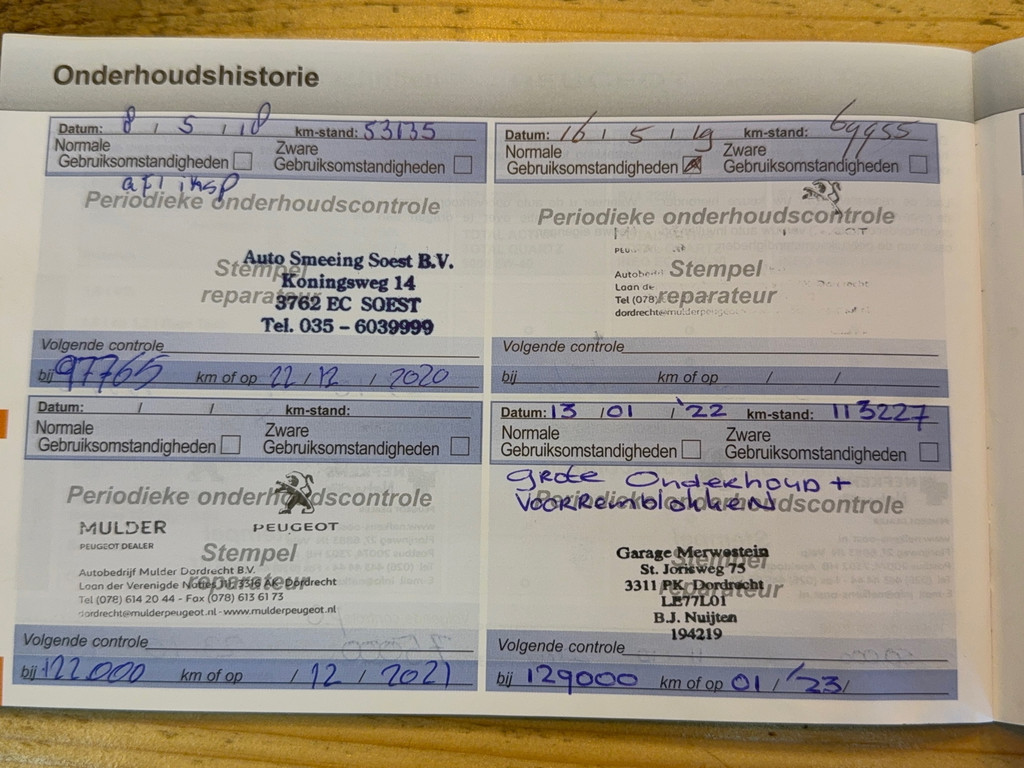 Onderhoudshistorie
Datum: 8 / 5 / 18 km-stand: 53135
Normale Gebruiksomstandigheden
Zware Gebruiksomstandigheden
afl insp
Periodieke onderhoudscontrole
Stempel reparateur
Auto Smeeing Soest B.V.
Koningsweg 14
3762 EC SOEST
Tel. 035 – 6039999
Volgende controle
bij 97765 km of op 22 / 12 / 2020
Datum: 16 / 5 / 19 km-stand: 69955
Normale Gebruiksomstandigheden
Zware Gebruiksomstandigheden
Periodieke onderhoudscontrole
Stempel
reparateur
Laan de
Tel (078)
Volgende controle
bij km of op / /
Datum: / / km-stand:
Normale Gebruiksomstandigheden
Zware Gebruiksomstandigheden
Periodieke onderhoudscontrole
MULDER
PEUGEOT DEALER
PEUGEOT
Stempel
reparateur
Autobedrijf Mulder Dordrecht B.V.
Laan der Verenigde Dordrecht
Tel (078) 614 20 44 - Fax (078) 613 61 73
dordrecht@mulderpeugeot.nl - www.mulderpeugeot.nl
Volgende controle
bij 122.000 km of op / 12 / 2021
Datum: 13 / 01 / '22 km-stand: 113227
Normale Gebruiksomstandigheden
Zware Gebruiksomstandigheden
grote Onderhoud +
Voorremblokken
Periodieke onderhoudscontrole
Stempel
reparateur
Garage Merwestein
St. Jorisweg 75
3311 PK Dordrecht
LE77L01
B.J. Nuijten
194219
Volgende controle
bij 129000 km of op 01 / '23 /